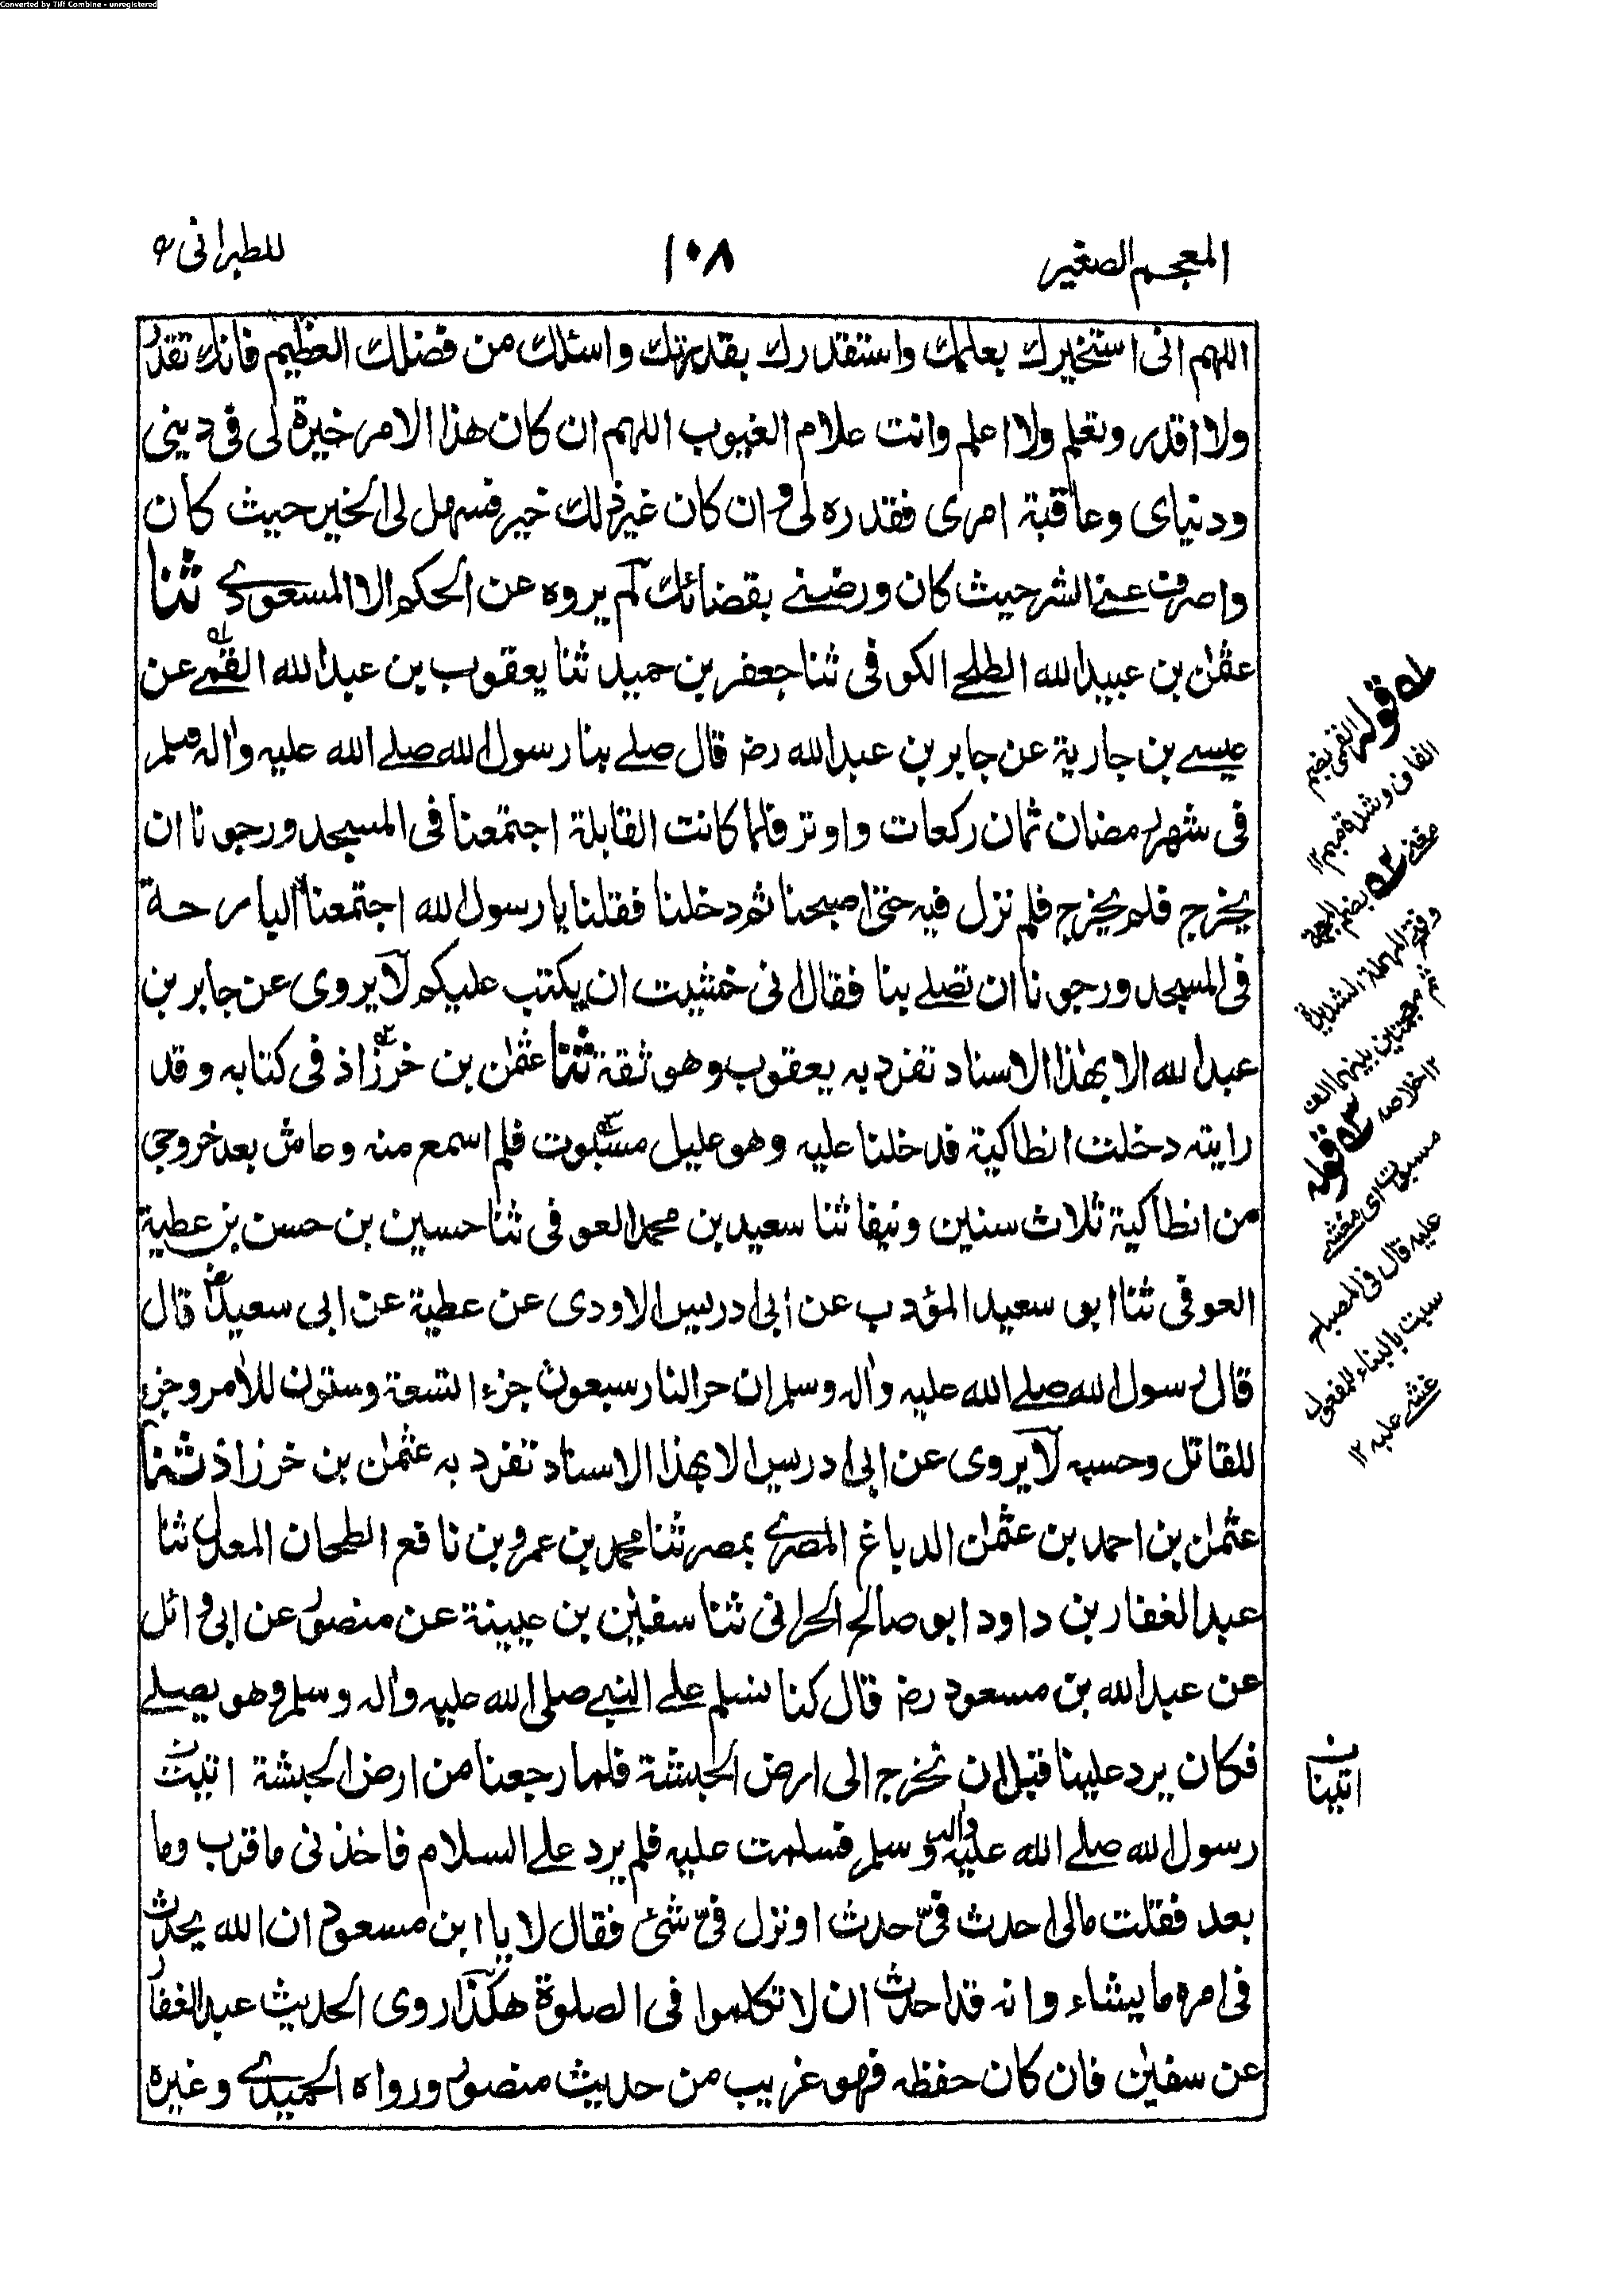 Converted by Tiff Combine - unregistered
المعجم الصغير ١٠٨ للطبرانی
اللهم انی استخیرك بعلمك واستقدرك بقدرتك واسئلك من فضلك العظیم فانك تقدر
ولا اقدر وتعلم ولا اعلم وانت علام الغیوب اللهم ان كان هذا الامر خیرة لی فی دینی
ودنیای وعاقبة امری فقدره لی وان كان غیر ذلك خیر فسهل لی الخیر حیث كان
واصرف عنی الشر حیث كان ورضنی بقضائك لم یروه عن الحكم الا المسعودی ثنا
عثمٰن بن عبید الله الطلحی الكوفی ثنا جعفر بن حمید ثنا یعقوب بن عبد الله القمی عن
عیسے بن جاریة عن جابر بن عبد الله رضہ قال صلے بنا رسول الله صلے الله علیه واٰله وسلم
فی شهر رمضان ثمان ركعات واوتر فلما كانت القابلة اجتمعنا فی المسجد ورجونا ان
یخرج فلم یخرج فلم نزل فیه حتی اصبحنا ثم دخلنا فقلنا یا رسول الله اجتمعنا البارحة
فی المسجد ورجونا ان تصلے بنا فقال انی خشیت ان یكتب علیكم لا یروی عن جابر بن
عبد الله الا بهٰذا الاسناد تفرد به یعقوب وهو ثقة ثنا عثمٰن بن خرزاذ فی كتابه وقد
رایته دخلت انطاكیة فدخلنا علیه وهو علیل مسبوت فلم اسمع منه وعاش بعد خروجی
من انطاكیة ثلاث سنین ونیفا ثنا سعید بن محمد العوفی ثنا حسین بن حسن بن عطیة
العوفی ثنا ابو سعید المؤدب عن ابی ادریس الاودی عن عطیة عن ابی سعید رض قال
قال رسول الله صلے الله علیه واٰله وسلم ان حر النار سبعون جزء التسعة وستون للاٰمر وجزء
للقاتل وحسبه لا یروی عن ابی ادریس الا بهذا الاسناد تفرد به عثمٰن بن خرزاذ ثنا
عثمٰن بن احمد بن عثمٰن الدباغ المصری بمصر ثنا محمد بن عمرو بن نافع الطحان المعدل ثنا
عبد الغفار بن داود ابو صالح الحرانی ثنا سفیٰن بن عیینة عن منصور عن ابی وائل
عن عبد الله بن مسعود رضہ قال كنا نسلم علے النبی صلی الله علیه واٰله وسلم وهو یصلے
فكان یرد علینا قبل ان نخرج الی ارض الحبشة فلما رجعنا من ارض الحبشة اتیت
رسول الله صلے الله علیه واٰله وسلم فسلمت علیه فلم یرد علے السلام فاخذنی ما قرب وما
بعد فقلت مالی احدث فیّ حدث او نزل فیّ شئ فقال لا یا ابن مسعود ان الله یحدث
فی امره ما یشاء وانه قد احدث ان لا تكلموا فی الصلوة هكذا روی الحدیث عبد الغفار
عن سفیٰن فان كان حفظه فهو غریب من حدیث منصور ورواه الحمیدی وغیره
له قوله القمی بضم
القاف وشدة میم ١٢
مغنی ٢ه بضم المعجمة
وفتح المهملة الشدیدة
ثم معجمتین بینهما الف
١٢ خلاصه ٣ه قوله
مسبوت ای مغشے
علیه قال فی المصباح
سبت بالبناء للمفعول
غشے علیه ١٢
اتینا ن